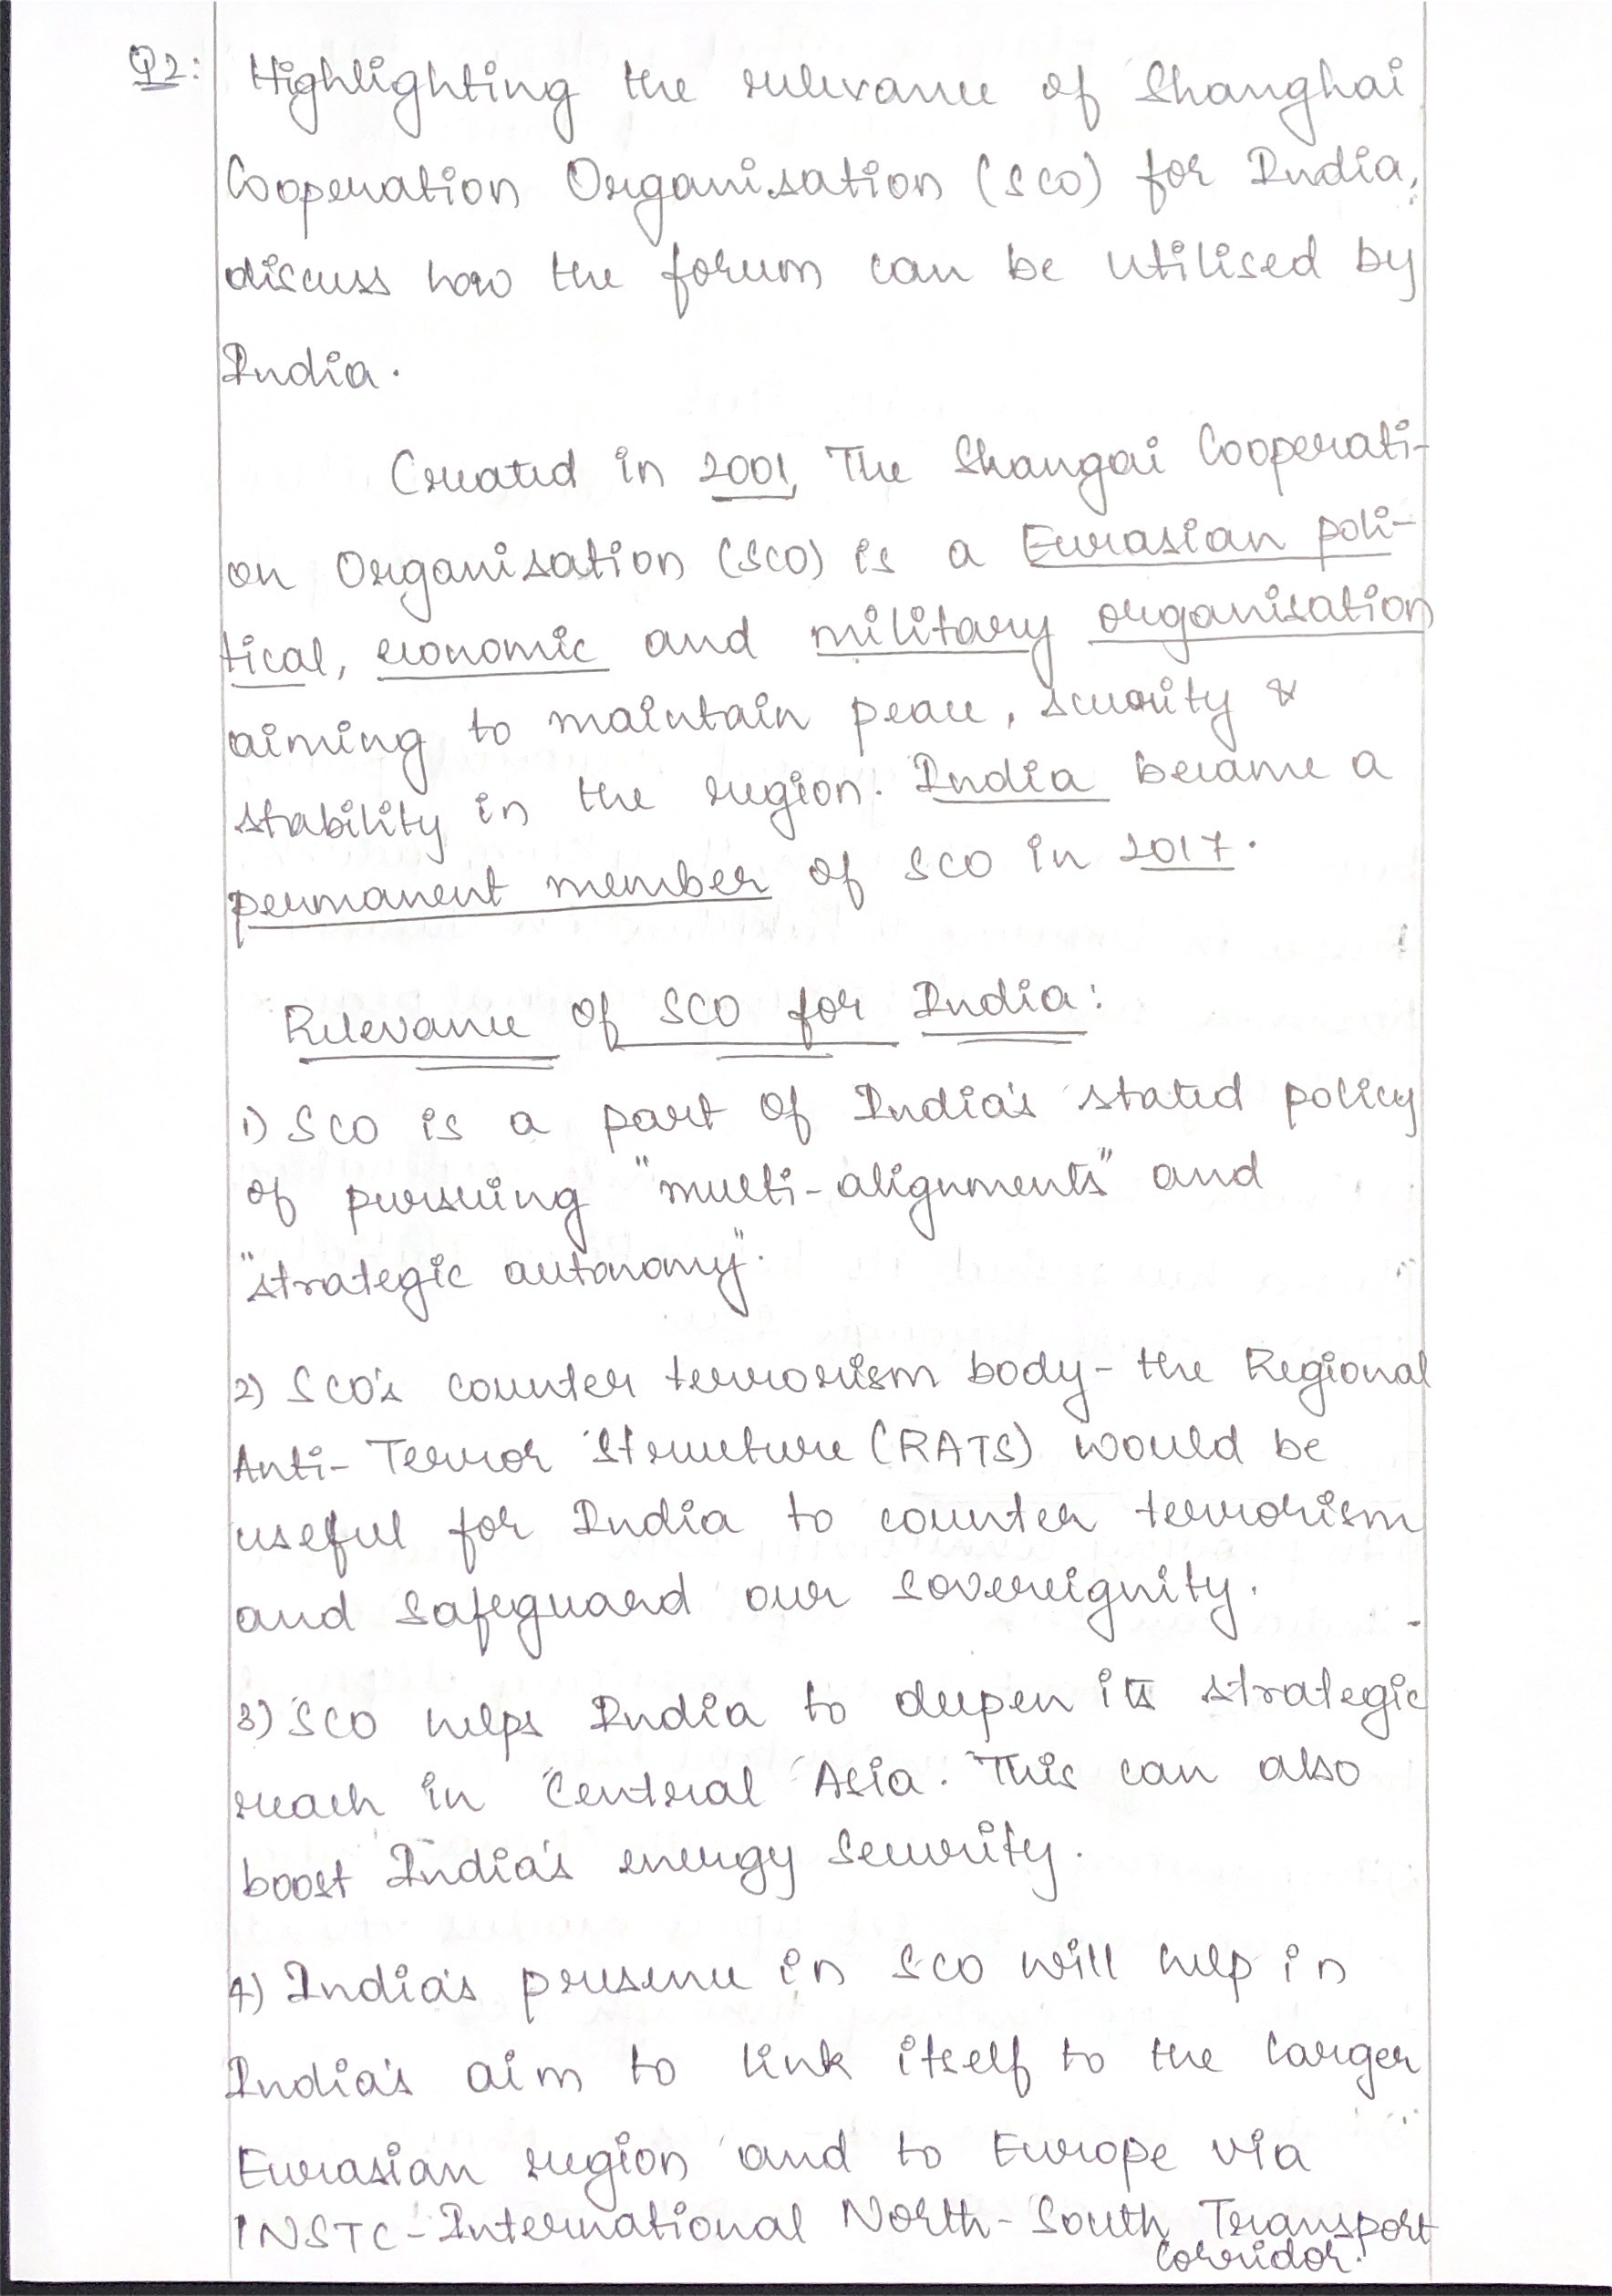 Q2: Highlighting the relevance of Shanghai
Cooperation Organisation (SCO) for India,
discuss how the forum can be utilised by
India.
Created in 2001, The Shangai Cooperati-
on Organisation (SCO) is a Eurasian poli-
tical, economic and military organisation
aiming to maintain peace, security &
stability in the region. India became a
permanent member of SCO in 2017.
Relevance of SCO for India:
1) SCO is a part of India's stated policy
of pursuing "multi-alignments" and
"strategic autonomy".
2) SCO's counter terrorism body - the Regional
Anti-Terror Structure (RATS) would be
useful for India to counter terrorism
and safeguard our sovereignity.
3) SCO helps India to deepen its strategic
reach in Central Asia. This can also
boost India's energy security.
4) India's presence in SCO will help in
India's aim to link itself to the larger
Eurasian region and to Europe via
INSTC - International North-South Transport
Corridor.